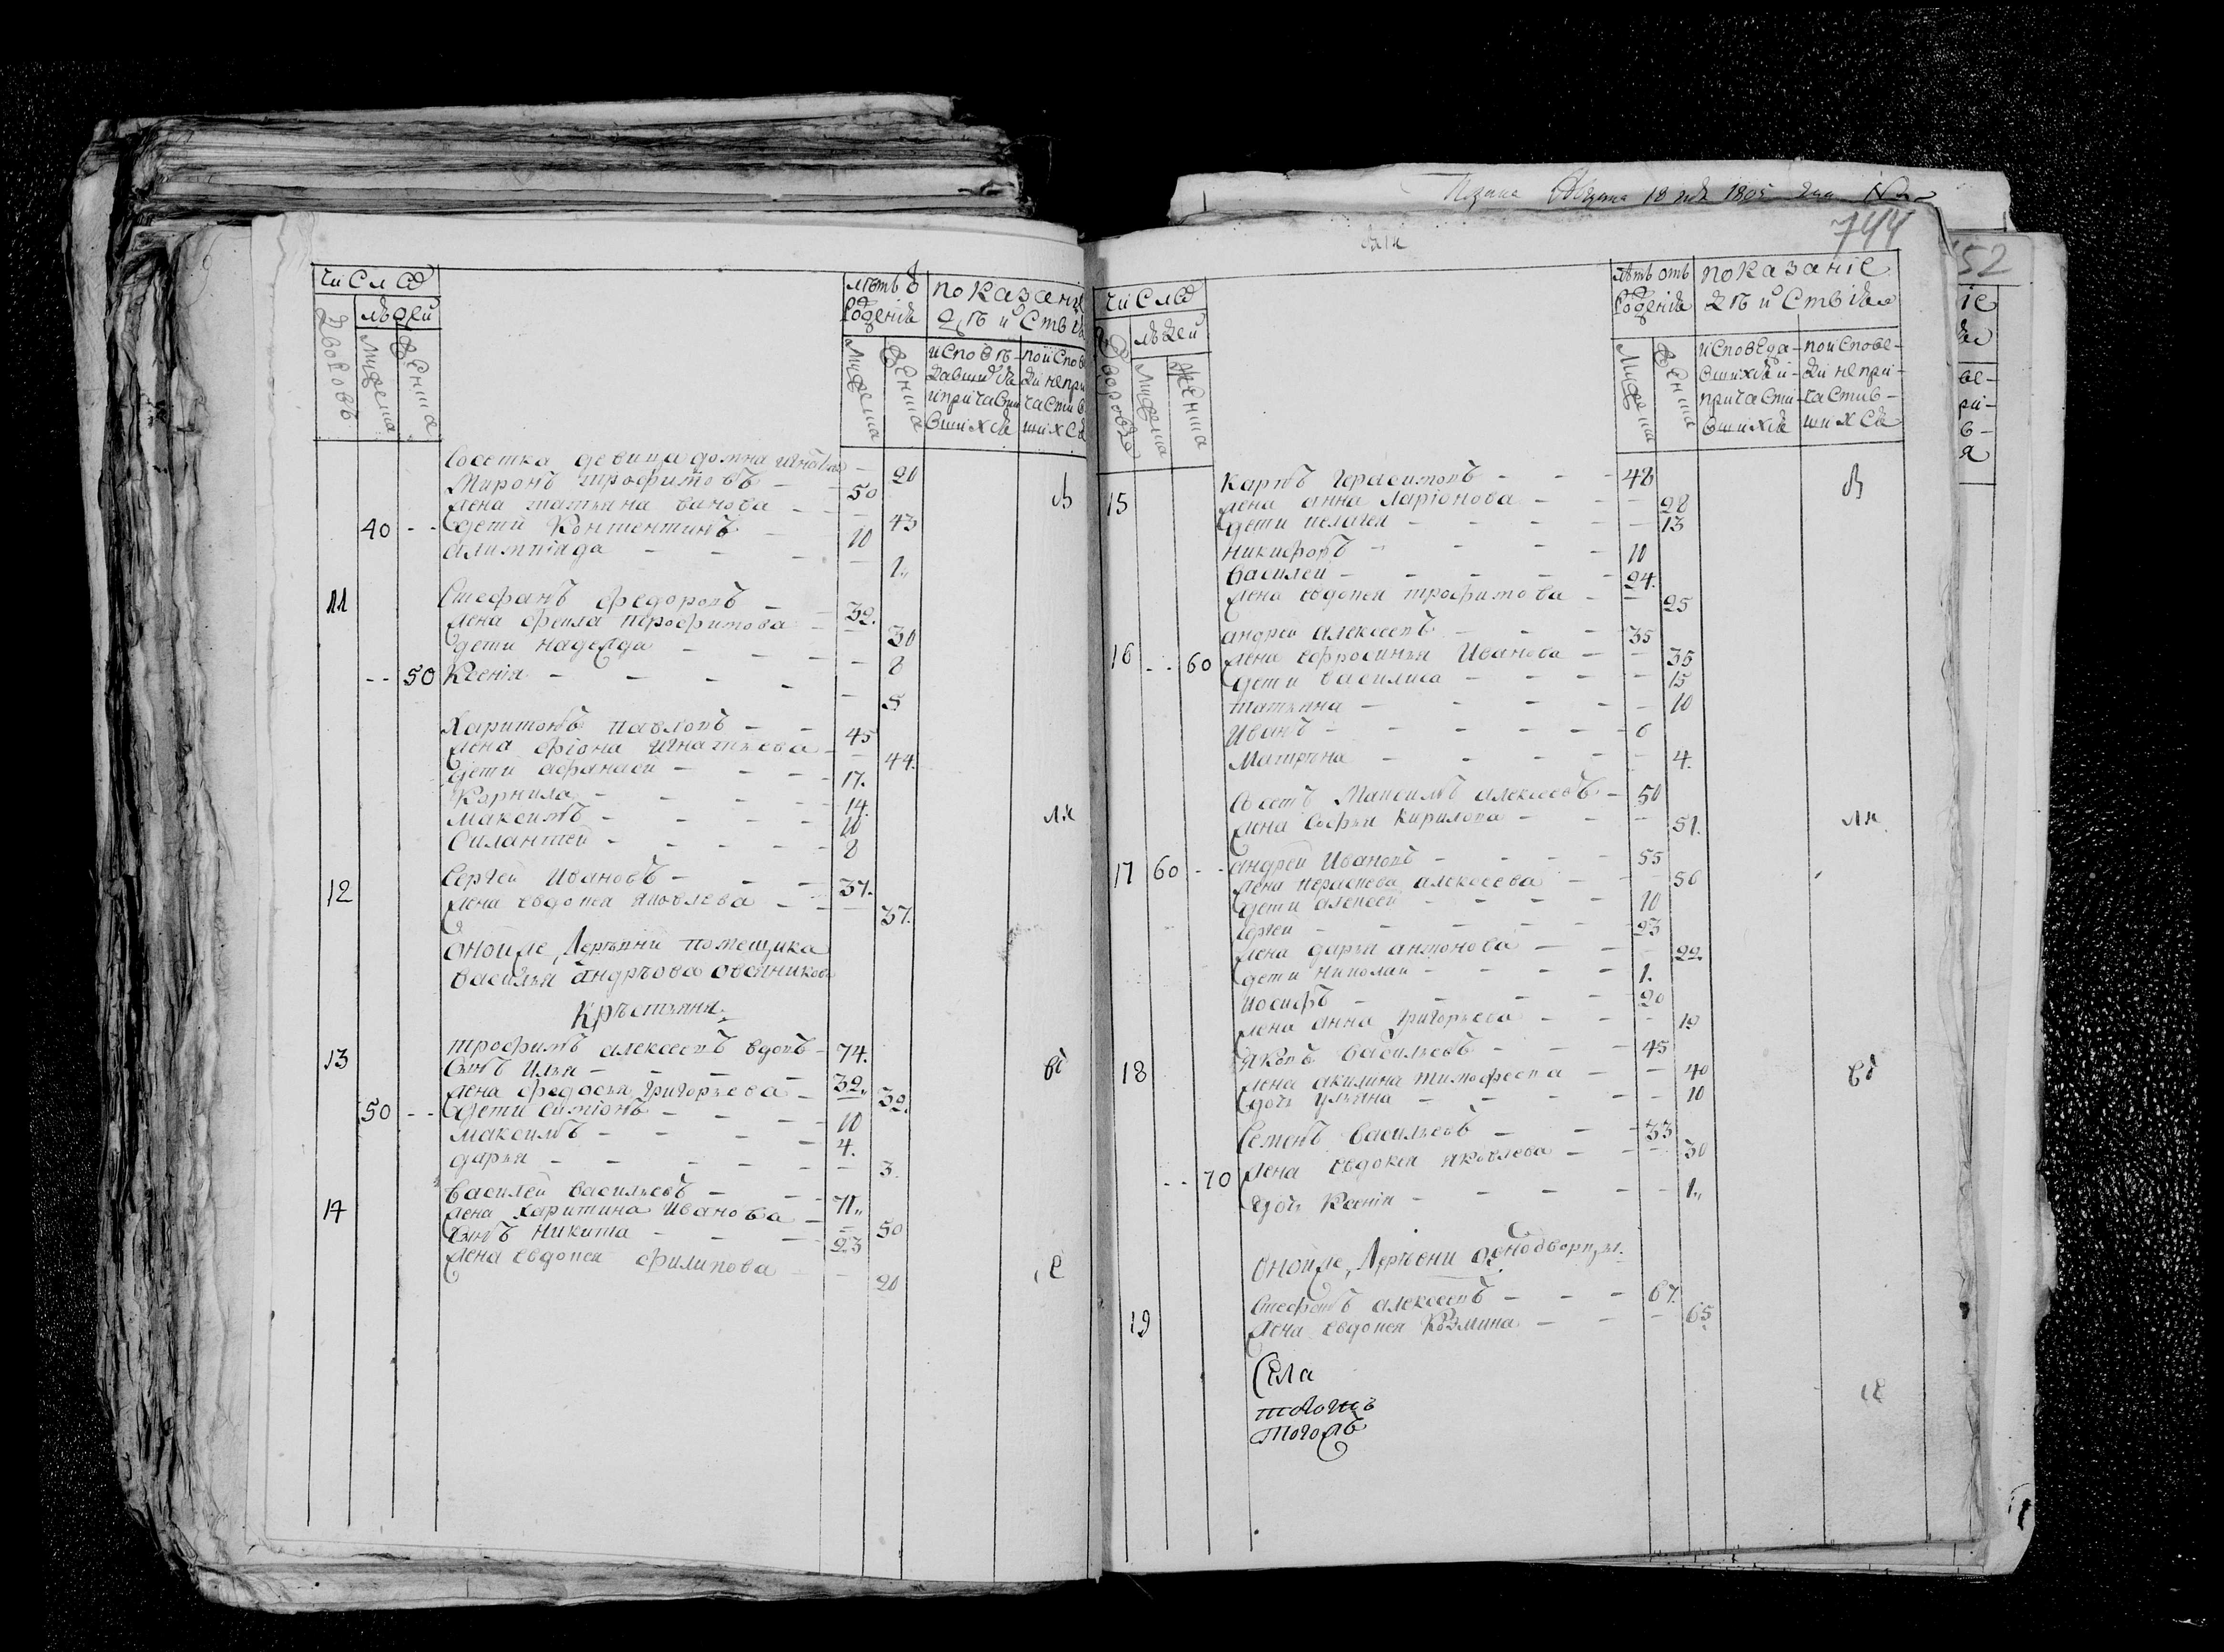 Числа
Дворовъ
людей
Мужеска
Женска
летъ от
рожденiя
Мужеска
Женска
показанiе
действiя
исповѣ-
давшихся
и причасти
вшихся
по испове
ди не при
частив
шихся
Сестка девица домна игнатова — 20
Миронъ трофимовъ — 50
жена татьяна ванова — 43
40 — дети Контентинъ — 10
алимпiада — 1
11 Стефанъ федоровъ — 32.
жена фекла перфирова — 30
дети надежда — 8
50 Ксенiя — 5
Харитонъ павловъ — 45
жена фiона игнатьева — 44.
дети афанасей — 17.
Корнила — 14.
Максимъ — 10
Силантей — 8
12 Сергей Ивановъ — 37.
жена евдокея яковлева — 37.
онойже деревни помещика
василья андреева овсяникова
Крестьяня
13 трофимъ алексеевъ вдовъ — 74.
Сынъ Илья — 32.
жена федосья григорьева — 32.
50 — дети симiонъ — 10
Максимъ — 4.
дарья — 3.
14 Василей васильевъ — 71.
жена харитина Иванова — 50
Сынъ никита — 23
жена евдокея филипова — 20
744
Числа
Дворовъ
людей
Мужеска
Женска
летъ отъ
рожденiя
Мужеска
Женска
показанiе
действiя
исповеда-
вшихся и
причасти-
вшихся
по испове-
ди не при-
частив-
шихся
15 Карпъ герасимовъ — 48
жена анна ларiонова — 28
дети пелагея — 13
никифоръ — 10
василей — 24.
жена евдокея трофимова — 25
16 андрей алексеевъ — 35
60 жена ефросинья Иванова — 35
дети василиса — 15
татьяна — 10
Иванъ — 6
Матрена — 4.
Соседъ Максимъ алексеевъ — 50
жена софья кирилова — 51.
17 60 — андрей Ивановъ — 55
жена парасковья алексеева — 56
дети алексей — 10
сергей — 23
жена дарья антонова — 22.
дети николай — 1.
иосифъ — 20
жена анна григорьева — 19
18 яковъ васильевъ — 45
жена акилина тимофеева — 40
дочь ульяна — 10
Семенъ васильевъ — 33
70 жена евдокея яковлева — 30
дочь Ксенiя — 1.
онойже деревни однодворцы.
19 Стефанъ алексеевъ — 67.
жена евдокея козмина — 65
Села
тогожъ
152